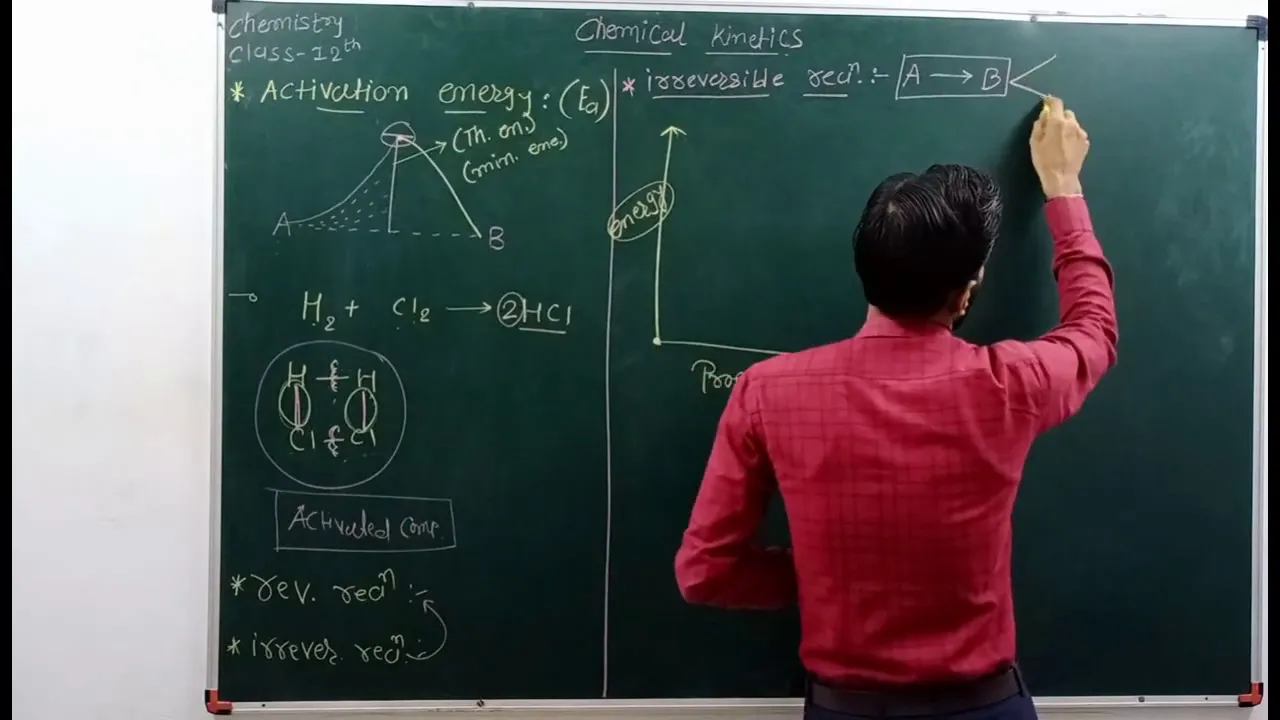 Chemistry
Class-12th
Chemical Kinetics
* Activation energy: (Ea)
(Th. en.)
(min. ene.)
A
B
H2 + Cl2 → 2HCl
H H
Cl Cl
Activated Comp.
* rev. reaⁿ :-
* irrever. reaⁿ:-
* irreversible reaⁿ :- A → B
energy